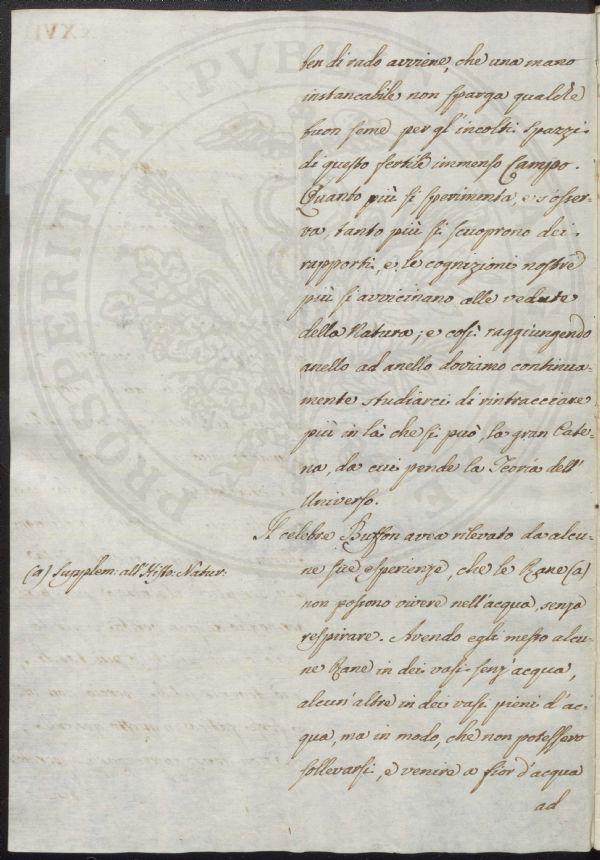 ben di rado avviene, che una mano
instancabile non sparga qualche
buon seme per gl'incolti spazzi
di questo fertile immenso Campo.
Quanto più si sperimenta, e s'osser-
va tanto più si scuoprono dei
rapporti, e le cognizioni nostre
più si avvicinano alle vedute
della Natura; e così raggiungendo
anello ad anello doviamo continua-
mente studiarci di rintracciare
più in là che si può, la gran Cate-
na, da cui pende la Teoria dell'
Universo.
Il celebre Buffon avea rilevato da alcu-
ne sue esperienze, che le Rane (a)
(a) Supplem: all'Histo: Natur:
non possono vivere nell'acqua, senza
respirare. Avendo egli messo alcu-
ne Rane in dei vasi senz'acqua,
alcun'altre in dei vasi pieni d'ac-
qua, ma in modo, che non potessero
sollevarsi, e venire a fior d'acqua
ad
PROSPERITATI PVBLICAE